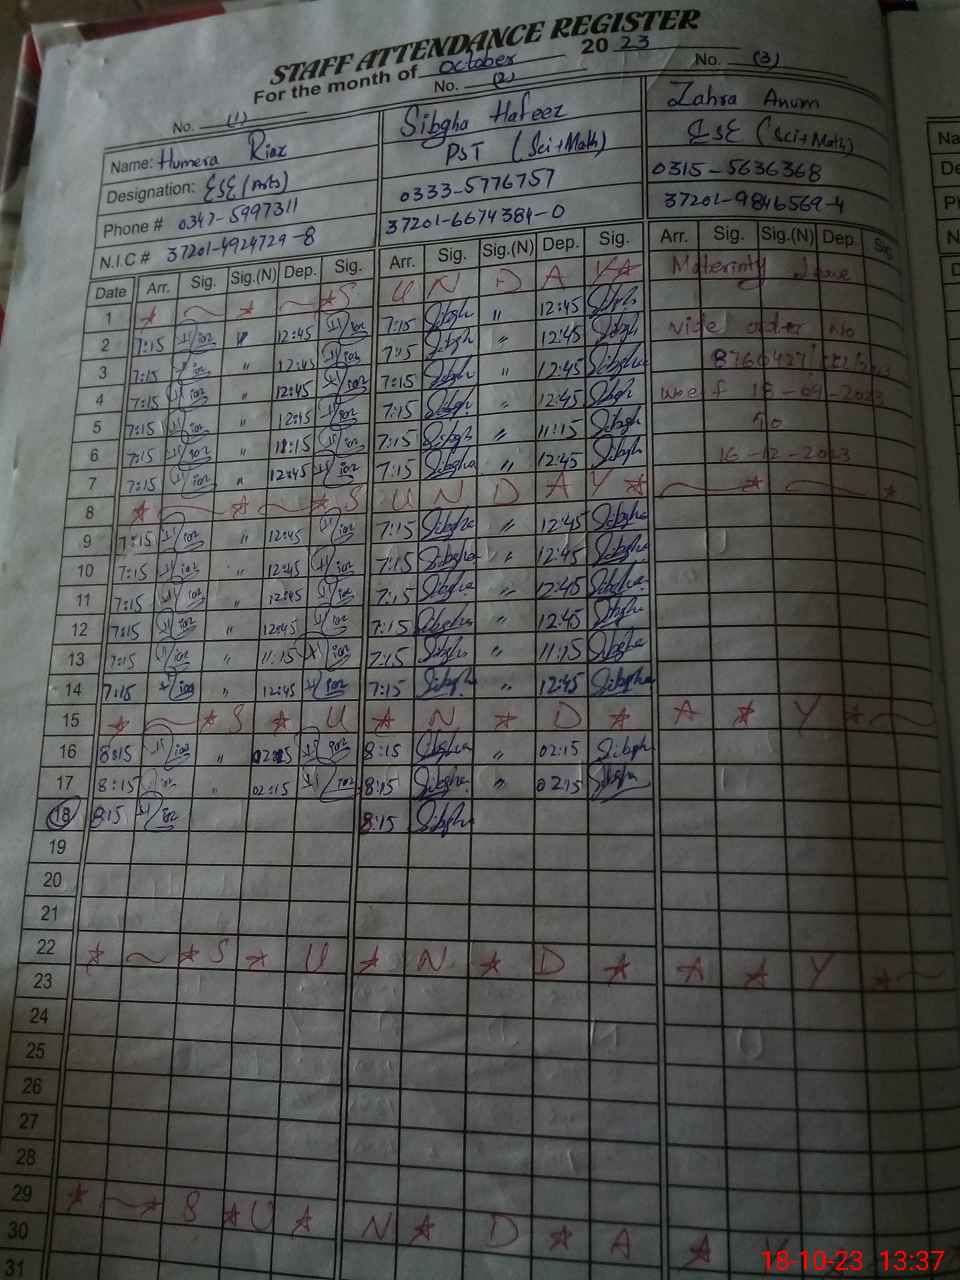 STAFF ATTENDANCE REGISTER
For the month of October 2023
No. (1) No. (2) No. (3)
Name: Humera Riaz Sibgha Hafeez Zahra Anum
Designation: ESE (Arts) PST (Sci+Math) ESE (Sci+Math)
Phone # 0347-5997311 0333-5776757 0315-5636368
N.I.C # 37201-4924729-8 37201-6674384-0 37201-9846569-4
Date Arr. Sig. Sig.(N) Dep. Sig. Arr. Sig. Sig.(N) Dep. Sig. Arr. Sig. Sig.(N) Dep. Sig.
1 S U N D A Y Maternity Leave
2 7:15 " 12:45 7:15 Sibgha " 12:45 Sibgha Vide order No
3 7:15 " 12:45 7:15 Sibgha " 12:45 Sibgha
4 7:15 " 12:45 7:15 Sibgha " 12:45 Sibgha w.e.f 18-09-2023
5 7:15 " 12:45 7:15 Sibgha " 12:45 Sibgha To
6 7:15 " 11:15 7:15 Sibgha " 11:15 Sibgha 16-12-2023
7 7:15 " 12:45 7:15 Sibgha " 12:45 Sibgha
8 S U N D A Y
9 7:15 " 12:45 7:15 Sibgha " 12:45 Sibgha
10 7:15 " 12:45 7:15 Sibgha " 12:45 Sibgha
11 7:15 " 12:45 7:15 Sibgha " 12:45 Sibgha
12 7:15 " 12:45 7:15 Sibgha " 12:45 Sibgha
13 7:15 " 11:15 7:15 Sibgha " 11:15 Sibgha
14 7:15 " 12:45 7:15 Sibgha " 12:45 Sibgha
15 S U N D A Y
16 8:15 " 02:15 8:15 Sibgha " 02:15 Sibgha
17 8:15 " 02:15 8:15 Sibgha " 02:15 Sibgha
18 8:15 8:15 Sibgha
19
20
21
22 S U N D A Y
23
24
25
26
27
28
29 S U N D A Y
30
31
18-10-23 13:37